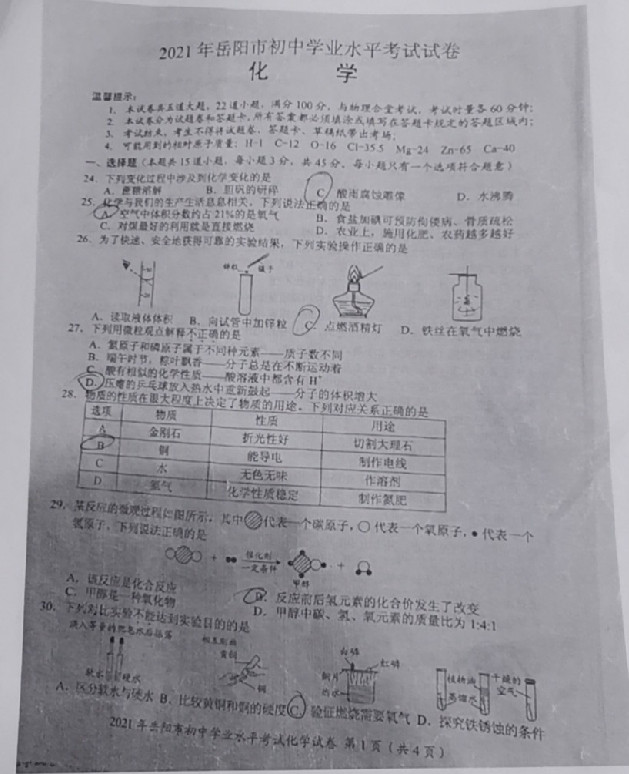 2021年岳阳市初中学业水平考试试卷
化 学
温馨提示:
1. 本试卷共五道大题,22道小题,满分100分,与物理合堂考试,考试时量各60分钟;
2. 本试卷分为试题卷和答题卡,所有答案都必须填涂或填写在答题卡规定的答题区域内;
3. 考试结束,考生不得将试题卷、答题卡、草稿纸带出考场;
4. 可能用到的相对原子质量:H-1 C-12 O-16 Cl-35.5 Mg-24 Zn-65 Ca-40
一、选择题(本题共15道小题,每小题3分,共45分,每小题只有一个选项符合题意)
24. 下列变化过程中涉及到化学变化的是
A. 蔗糖溶解 B. 胆矾的研碎 C. 酸雨腐蚀雕像 D. 水沸腾
25. 化学与我们的生产生活息息相关,下列说法正确的是
A. 空气中体积分数约占21%的是氧气 B. 食盐加碘可预防佝偻病、骨质疏松
C. 对煤最好的利用就是直接燃烧 D. 农业上,施用化肥、农药越多越好
26. 为了快速、安全地获得可靠的实验结果,下列实验操作正确的是
锌粒 镊子
A. 读取液体体积 B. 向试管中加锌粒 C. 点燃酒精灯 D. 铁丝在氧气中燃烧
27. 下列用微粒观点解释不正确的是
A. 氮原子和磷原子属于不同种元素——质子数不同
B. 端午时节,粽叶飘香——分子总是在不断运动着
C. 酸有相似的化学性质——酸溶液中都含有H⁺
D. 压瘪的乒乓球放入热水中重新鼓起——分子的体积增大
28. 物质的性质在很大程度上决定了物质的用途。下列对应关系正确的是
选项 物质 性质 用途
A 金刚石 折光性好 切割大理石
B 铜 能导电 制作电线
C 水 无色无味 作溶剂
D 氮气 化学性质稳定 制作氮肥
29. 某反应的微观过程如图所示,其中 代表一个碳原子,○代表一个氧原子,●代表一个
氢原子,下列说法正确的是
催化剂
一定条件
甲醇
A. 该反应是化合反应 B. 反应前后氢元素的化合价发生了改变
C. 甲醇是一种氧化物 D. 甲醇中碳、氢、氧元素的质量比为1:4:1
30. 下列对比实验不能达到实验目的的是
滴入等量的肥皂水后振荡
软水 硬水
相互刻画
黄铜
铜
白磷
红磷
铜片
热水
植物油
蒸馏水
干燥的
空气
A. 区分软水与硬水 B. 比较黄铜和铜的硬度 C. 验证燃烧需要氧气 D. 探究铁锈蚀的条件
2021年岳阳市初中学业水平考试化学试卷 第1页(共4页)